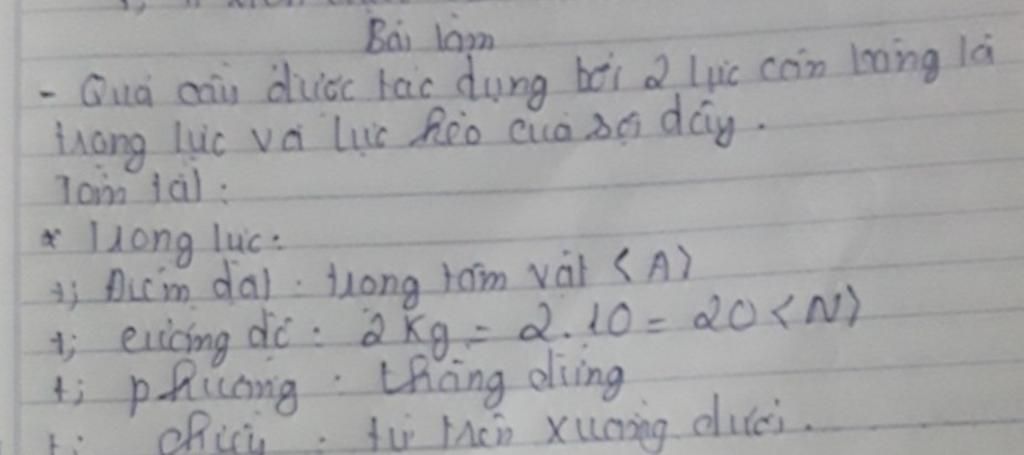 Bài làm
- Quả cầu được tác dụng bởi 2 lực cân bằng là
trọng lực và lực kéo của sợi dây.
Tóm tắt:
* Trọng lực:
+; Điểm đặt: trọng tâm vật <A>
+; cường độ: 2Kg = 2.10 = 20 <N>
+; phương: thẳng đứng
+; chiều: từ trên xuống dưới.